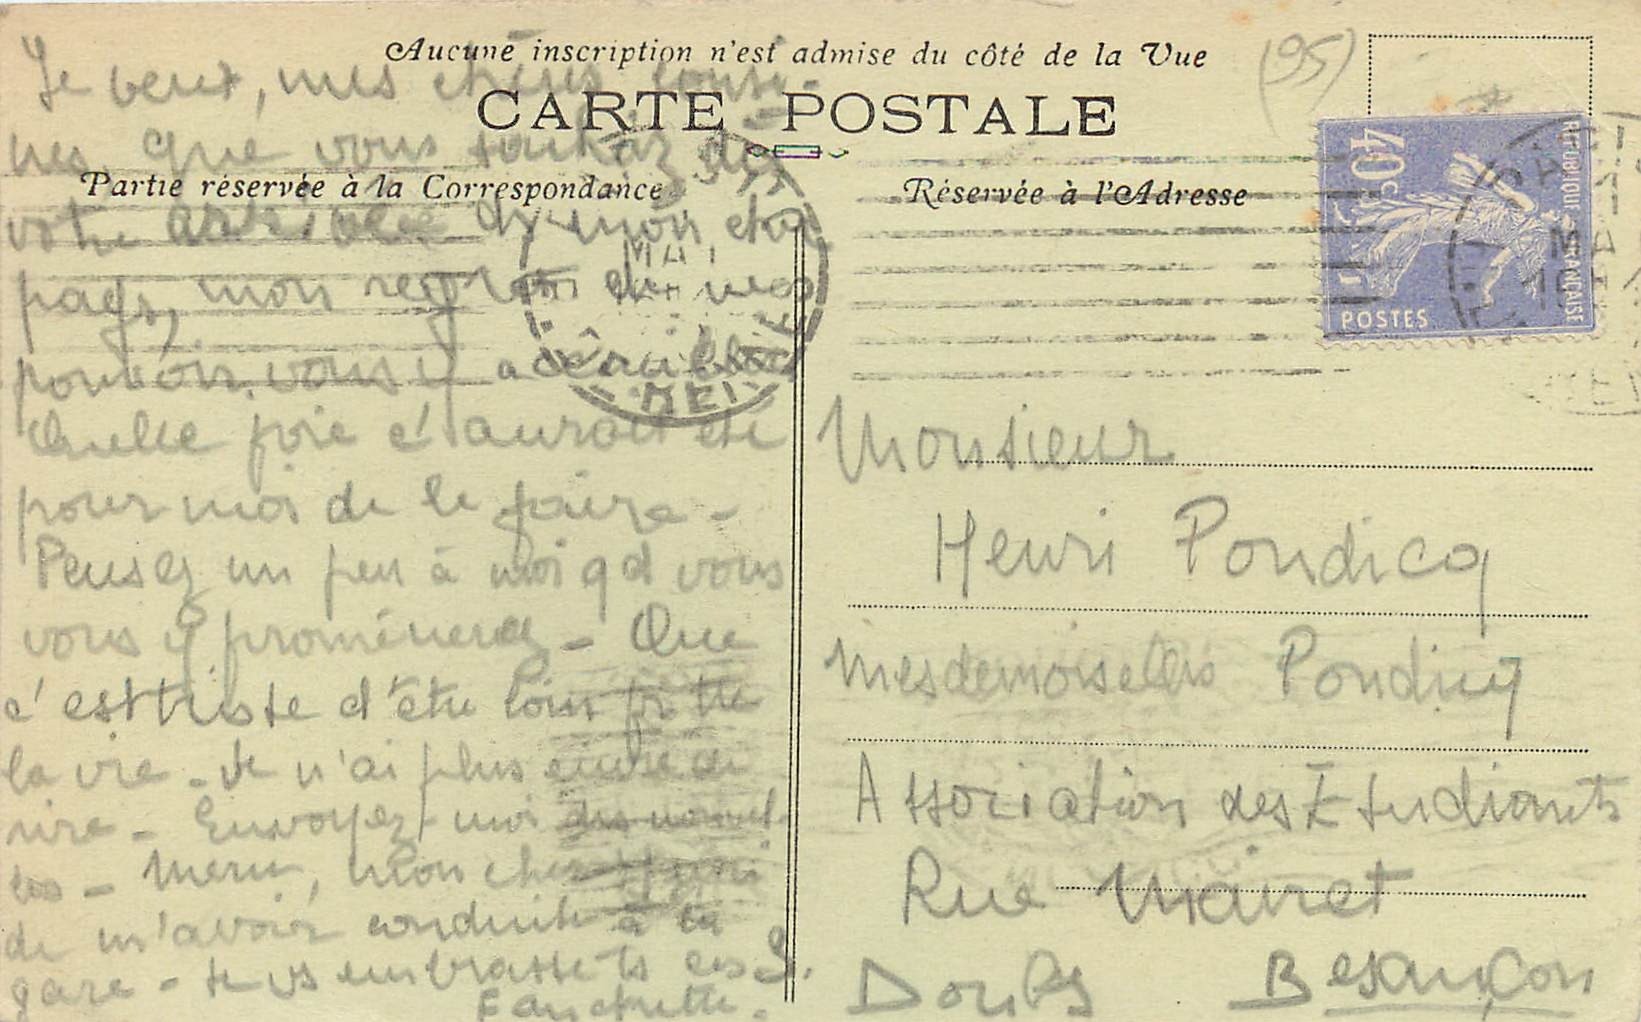 Aucune inscription n'est admise du côté de la Vue
(95)
CARTE POSTALE
Partie réservée à la Correspondance
Réservée à l'Adresse
REPUBLIQUE FRANÇAISE
40c
POSTES
MAI
Je veux, mes chers cousi-
nes, que vous sachiez dès
votre arrivée ds mon cher
pays, mon regret de ne
pouvoir vous y accueillir
Quelle joie c'aurait été
pour moi de le faire -
Pensez un peu à moi qd vous
vous y promènerez - Que
c'est triste d'être loin
la vie - Je n'ai plus envie de
rire - Envoyez moi des nouvel-
les - Merci, mon cher Henri
de m'avoir conduite à la
gare - Je vs embrasse ts les 3.
Fanchette.
Monsieur
Henri Pondicq
Mesdemoiselles Pondicq
Association des Etudiants
Rue Mairet
Doubs Besançon